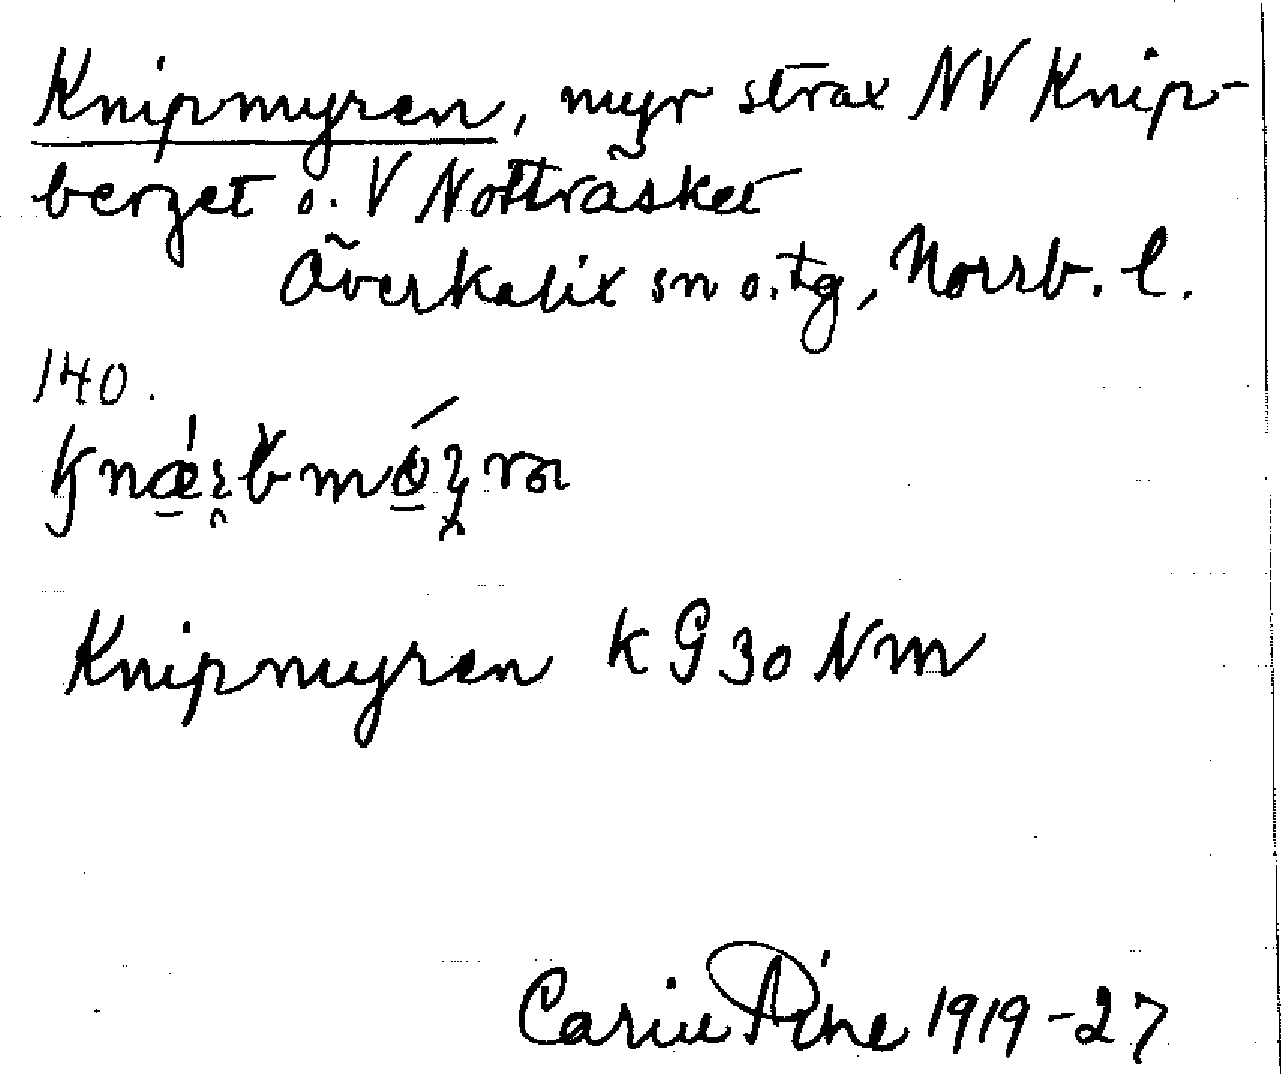 Knipmyren, myr strax NV Knip-
berget o. V Notträsket
Överkalix sn o. tg, Norrb. l.
140.
Knipmyren k G 30 Nm
Carin Pihl 1919-27